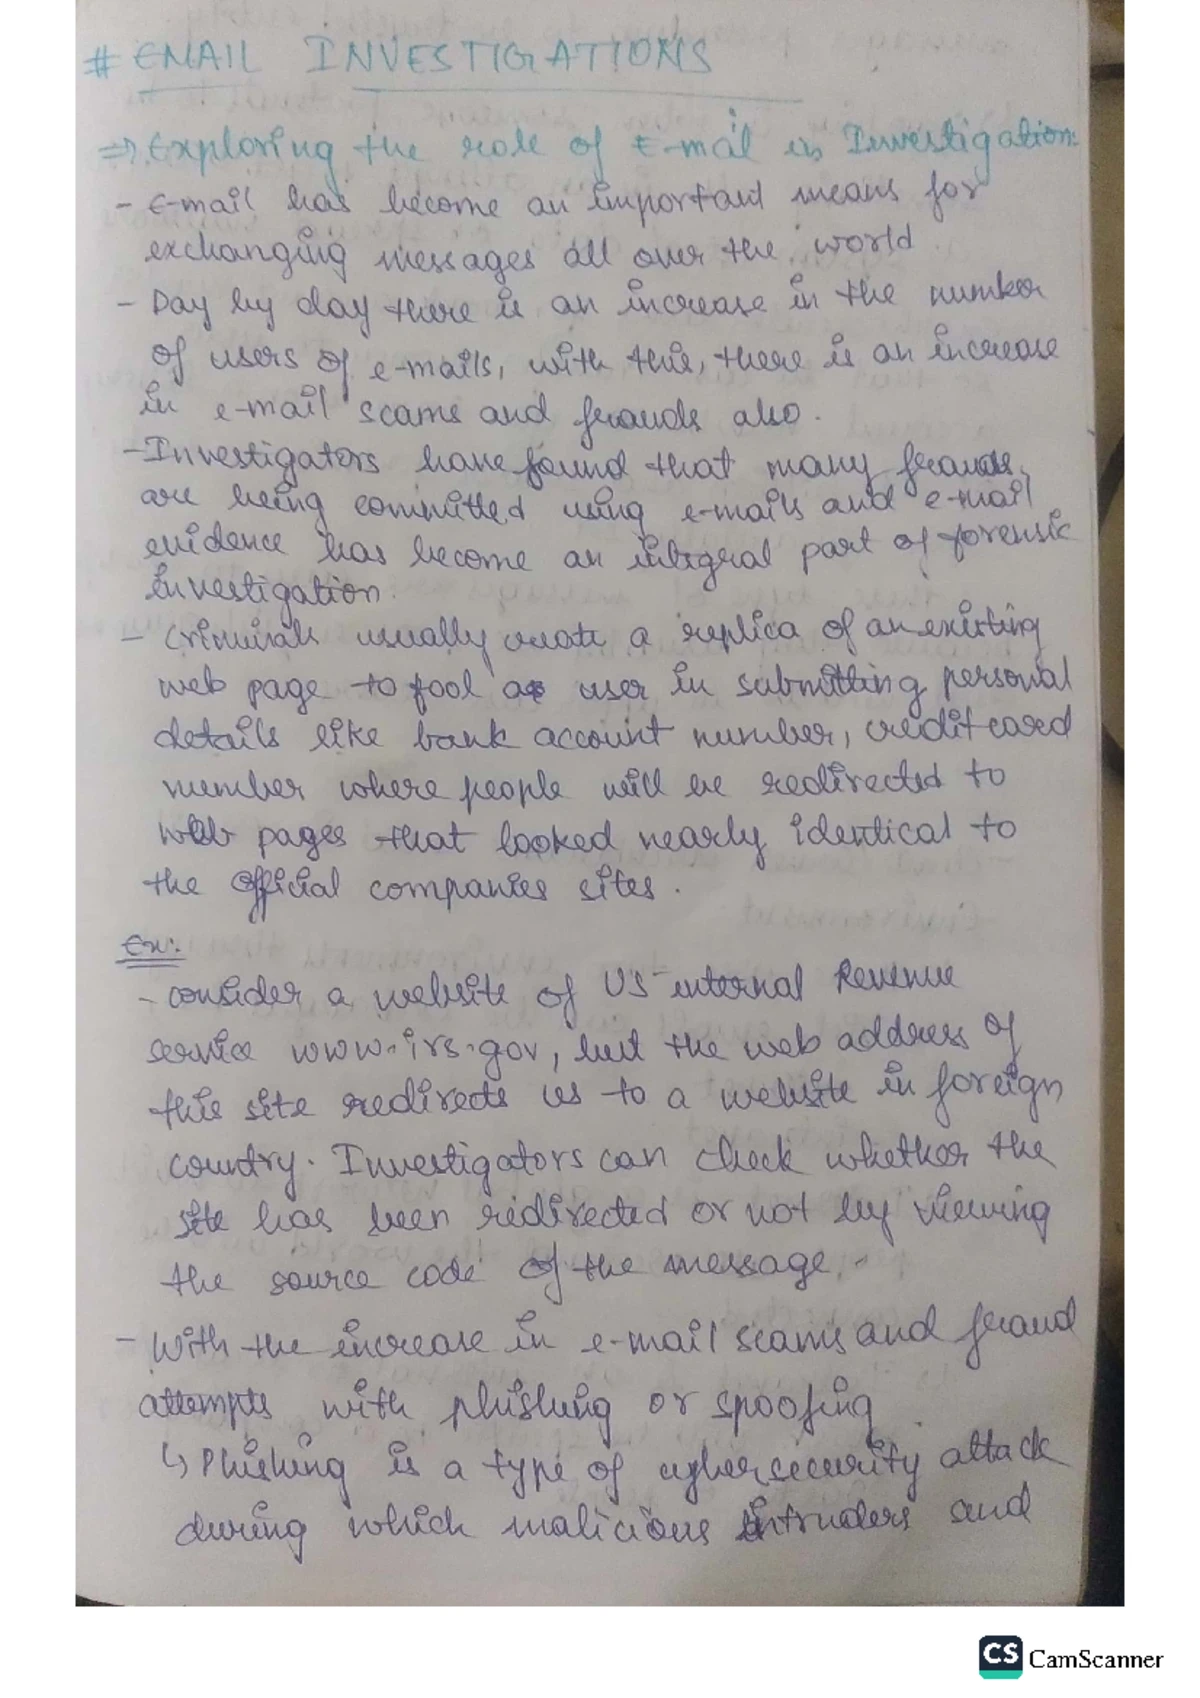 # EMAIL INVESTIGATIONS
=> Exploring the role of E-mail in Investigation:
- E-mail has become an important means for
exchanging messages all over the world
- Day by day there is an increase in the number
of users of e-mails, with this, there is an increase
in e-mail scams and frauds also.
- Investigators have found that many frauds
are being committed using e-mails and e-mail
evidence has become an integral part of forensic
investigation.
- Criminals usually create a replica of an existing
web page to fool a user in submitting personal
details like bank account number, credit card
number where people will be redirected to
web pages that looked nearly identical to
the official companies sites.
Ex:
- consider a website of US-internal Revenue
service www.irs.gov, but the web address of
this site redirects us to a website in foreign
country. Investigators can check whether the
site has been redirected or not by viewing
the source code of the message.
- With the increase in e-mail scams and fraud
attempts with phishing or spoofing
↳ Phishing is a type of cybersecurity attack
during which malicious intruders send
CS CamScanner